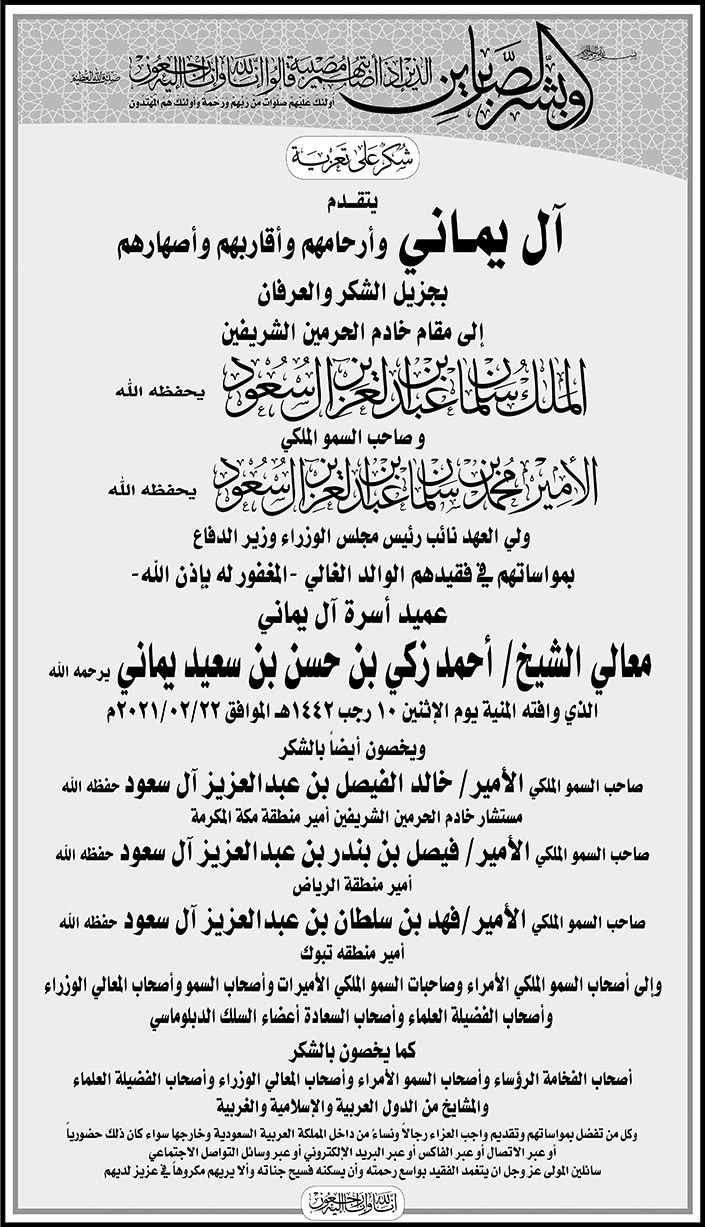 بسم الله الرحمن الرحيم
وبشر الصابرين الذين إذا أصابتهم مصيبة قالوا إنا لله وإنا إليه راجعون
أولئك عليهم صلوات من ربهم ورحمة وأولئك هم المهتدون
صدق الله العظيم
شكر على تعزية
يتقـدم
آل يمـاني وأرحامهم وأقاربهم وأصهارهم
بجزيل الشكر والعرفان
إلى مقام خادم الحرمين الشريفين
الملك سلمان بن عبدالعزيز آل سعود يحفظه الله
و صاحب السمو الملكي
الأمير محمد بن سلمان بن عبدالعزيز آل سعود يحفظه الله
ولي العهد نائب رئيس مجلس الوزراء وزير الدفاع
بمواساتهم في فقيدهم الوالد الغالي -المغفور له بإذن الله-
عميد أسرة آل يماني
معالي الشيخ/ أحمد زكي بن حسن بن سعيد يماني يرحمه الله
الذي وافته المنية يوم الإثنين ١٠ رجب ١٤٤٢هـ الموافق ٢٠٢١/٠٢/٢٢م
ويخصون أيضاً بالشكر
صاحب السمو الملكي الأمير/ خالد الفيصل بن عبدالعزيز آل سعود حفظه الله
مستشار خادم الحرمين الشريفين أمير منطقة مكة المكرمة
صاحب السمو الملكي الأمير/ فيصل بن بندر بن عبدالعزيز آل سعود حفظه الله
أمير منطقة الرياض
صاحب السمو الملكي الأمير/فهد بن سلطان بن عبدالعزيز آل سعود حفظه الله
أمير منطقه تبوك
وإلى أصحاب السمو الملكي الأمراء وصاحبات السمو الملكي الأميرات وأصحاب السمو وأصحاب المعالي الوزراء
وأصحاب الفضيلة العلماء وأصحاب السعادة أعضاء السلك الدبلوماسي
كما يخصون بالشكر
أصحاب الفخامة الرؤساء وأصحاب السمو الأمراء وأصحاب المعالي الوزراء وأصحاب الفضيلة العلماء
والمشايخ من الدول العربية والإسلامية والغربية
وكل من تفضل بمواساتهم وتقديم واجب العزاء رجالاً ونساءً من داخل المملكة العربية السعودية وخارجها سواء كان ذلك حضورياً
أو عبر الاتصال أو عبر الفاكس أو عبر البريد الإلكتروني أو عبر وسائل التواصل الاجتماعي
سائلين المولى عز وجل ان يتغمد الفقيد بواسع رحمته وأن يسكنه فسيح جناته وألا يريهم مكروهاً في عزيز لديهم
إنا لله وإنا إليه راجعون